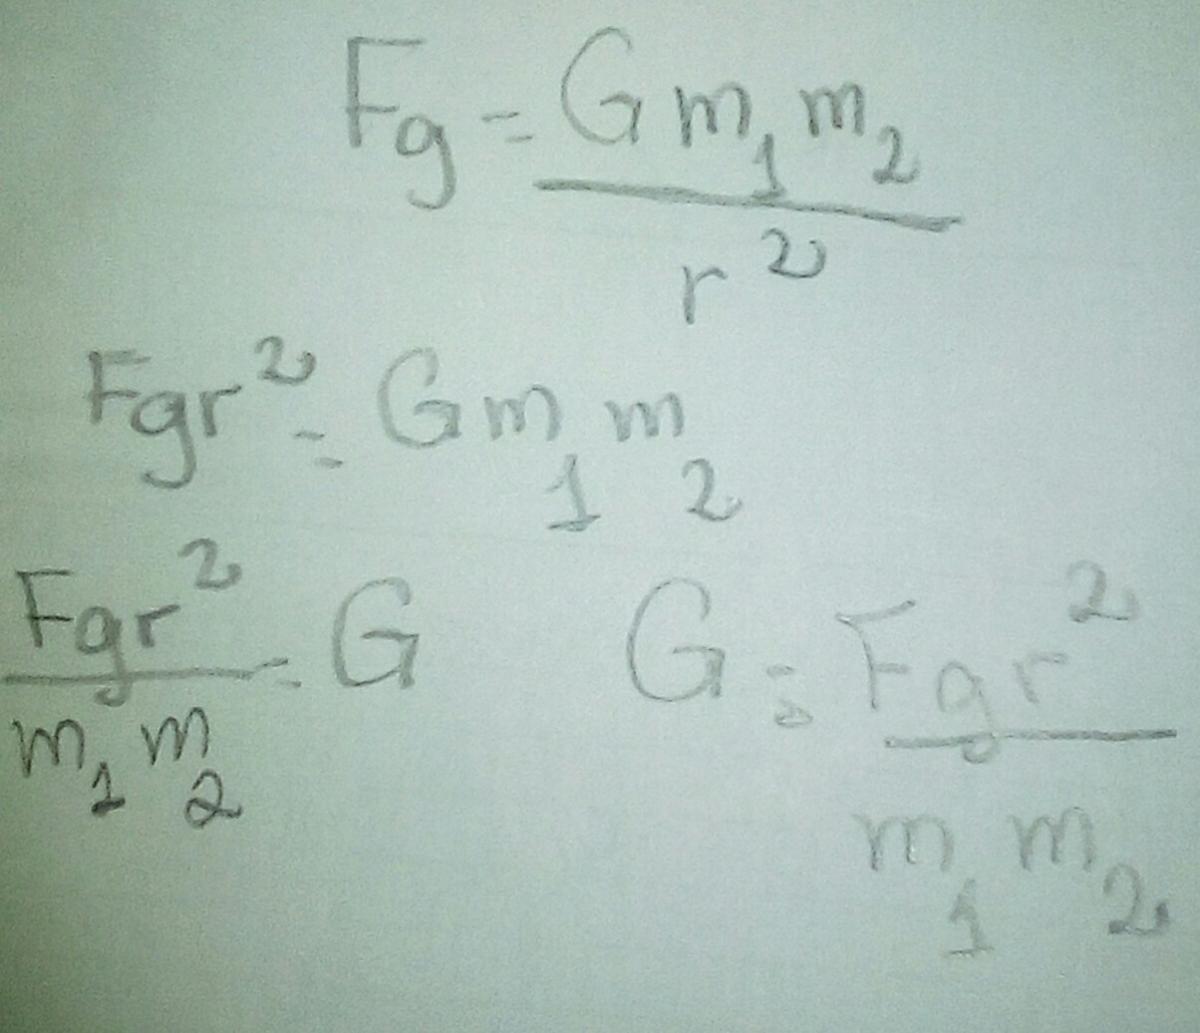 Fg = G m₁ m₂ / r²
Fgr² = G m₁ m₂
Fgr² / m₁ m₂ = G G = Fgr² / m₁ m₂